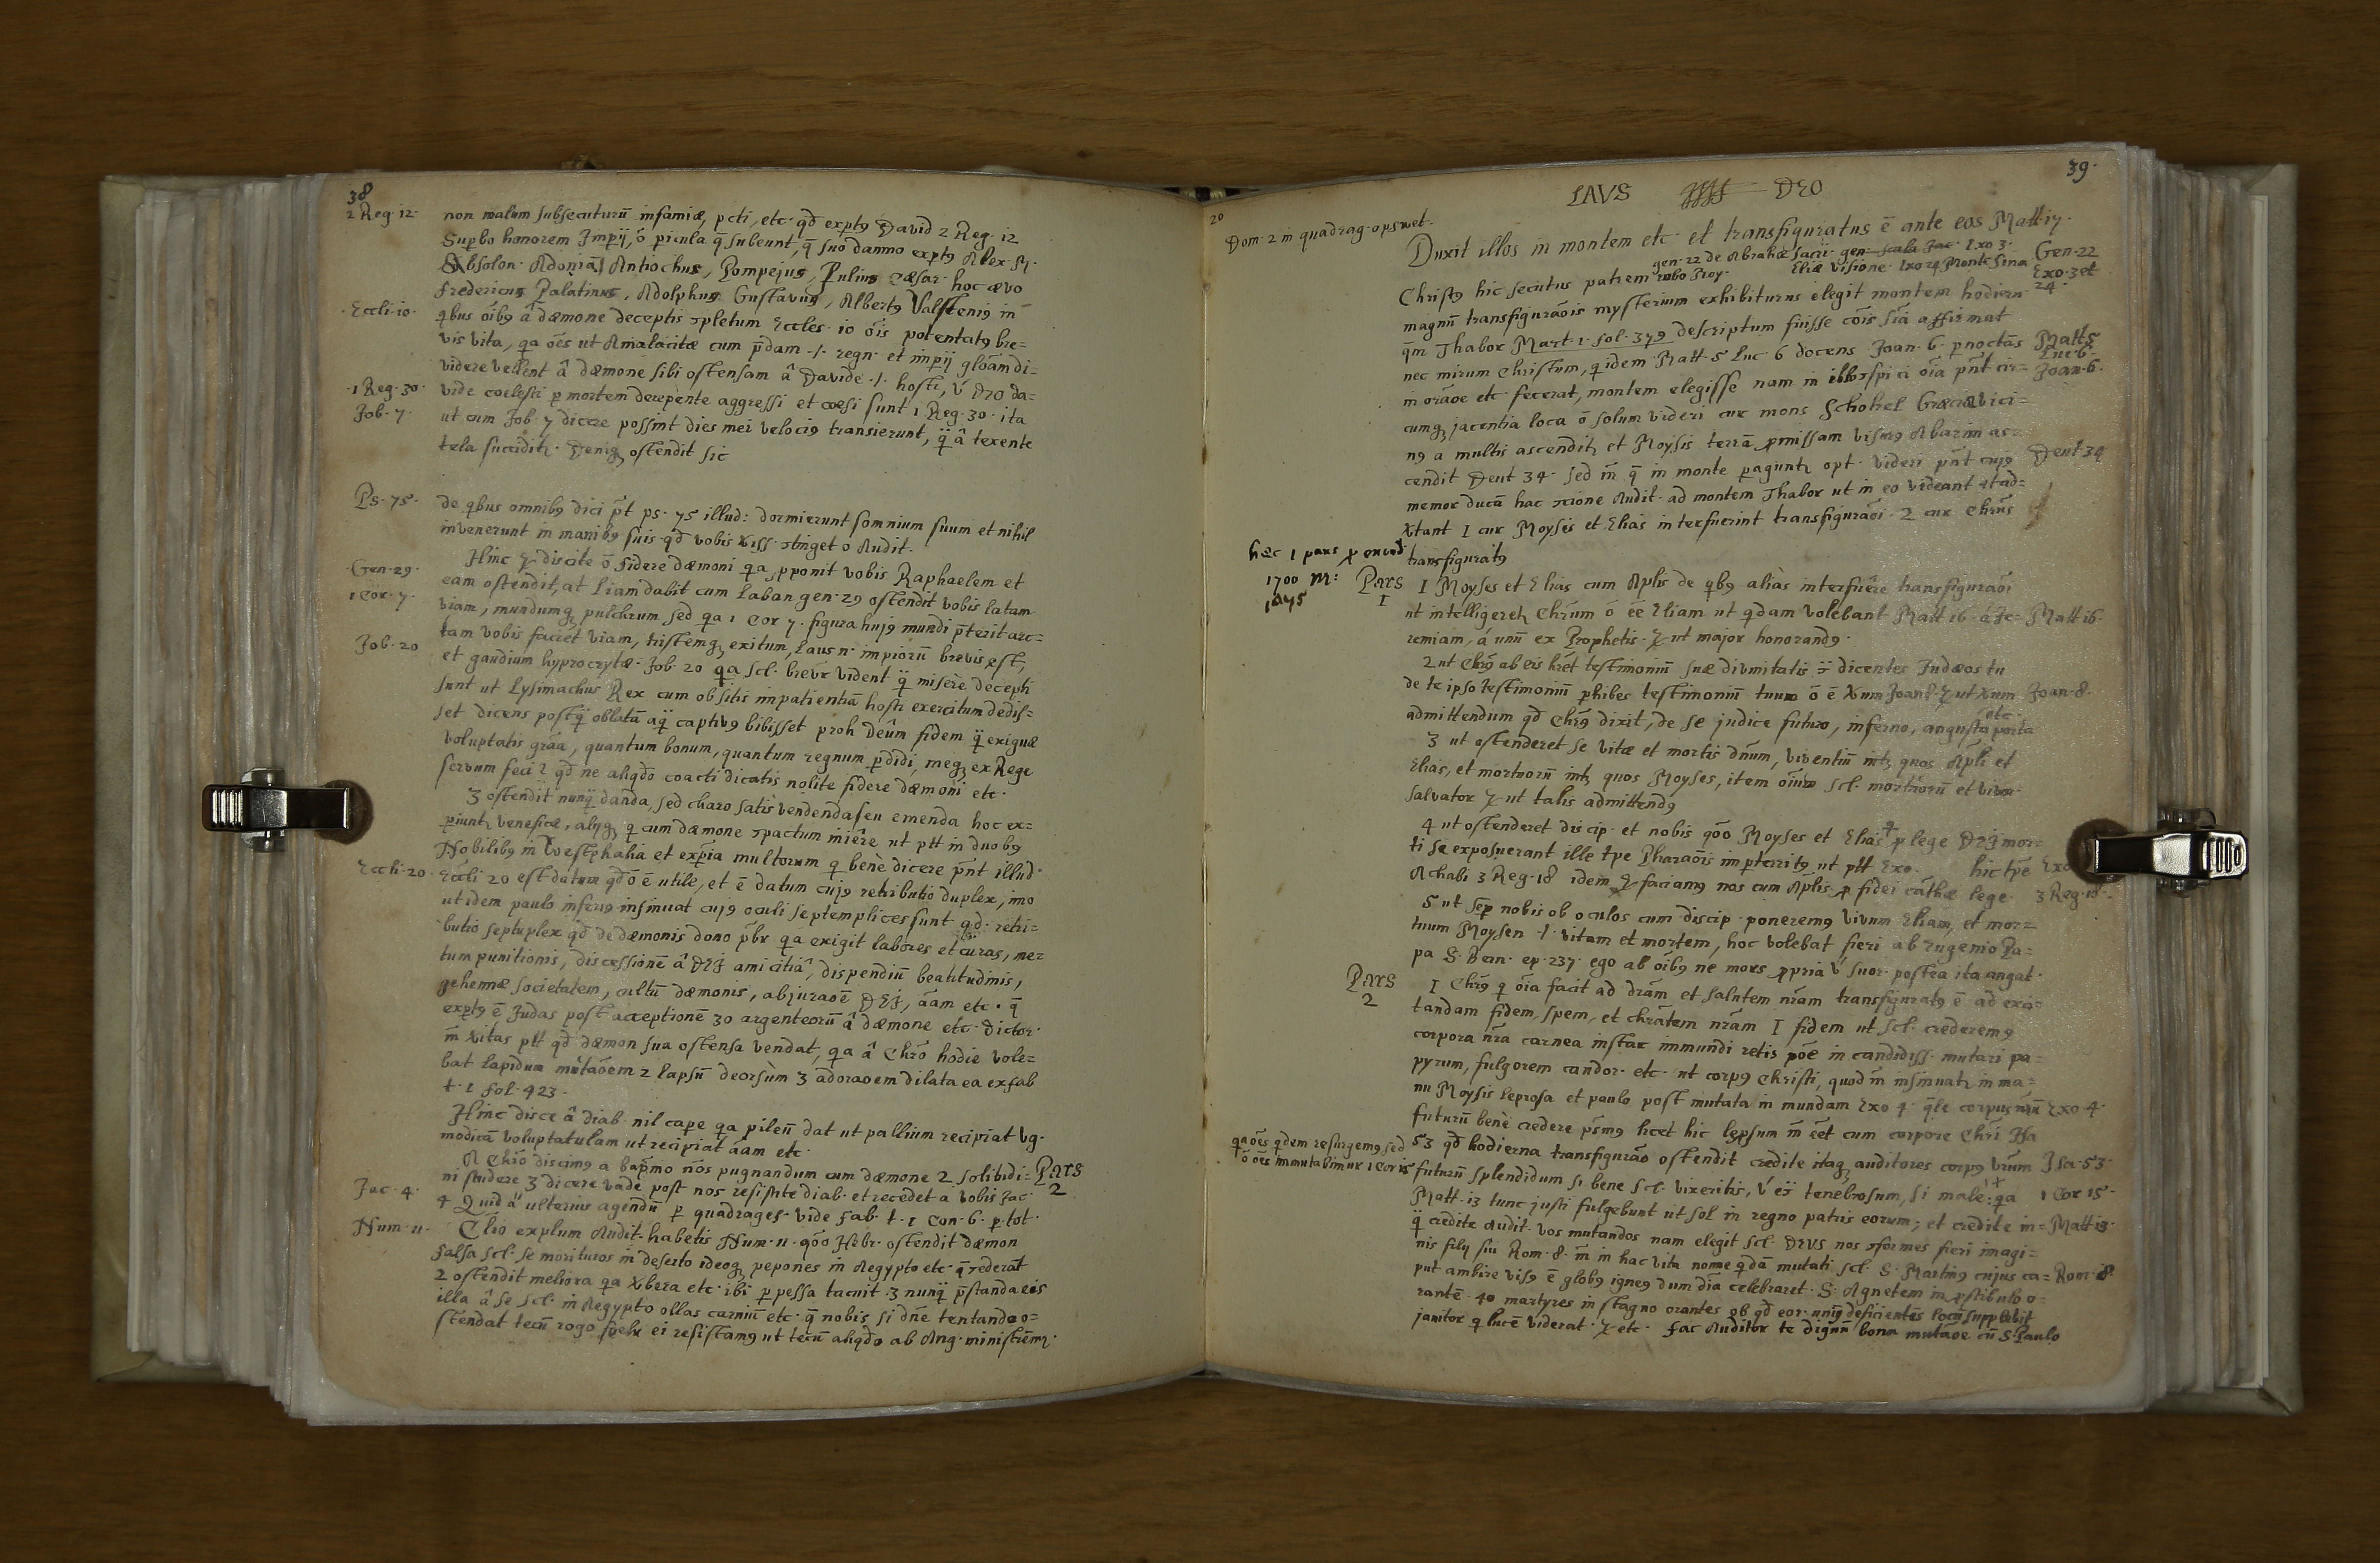 38
2 Reg. 12.
non malum subsecuturū infamiæ, pcti, etc. qđ expt9 David 2 Reg. 12
Supbo honorem Impij, ó picula q̄ subeunt, q̄ suo damno expt9 Alex. M.
Absolon. Adonias Antiochus, Pompejus, Julius Cæsar. hoc ævo
Fredericus Palatinus, Adolphus Gustavus, Albert9 Valstenig in
Eccli. 10.
qbus óib9 â dæmone deceptis pletum Eccles. 10 óis potentat9 bre=
vis vita, qa óes ut Amalacitæ cum p̄dam .1. regn. et impij glóam di=
videre vellent â dæmone sibi ostensam â Davide .1. hoste, v́ DEO da=
1 Reg. 30.
vide coelesti p mortem derepente aggressi et coesi sunt 1 Reg. 30. ita
Job. 7.
ut cum Job 7 dicere possint dies mei velocig transierunt, q̄ â texente
tela succidit. Deniq ostendit sic
Ps. 75.
de qbus omnib9 dici p̄t ps. 75 illud: dormierunt somnium suum et nihil
invenerunt in manib9 suis qđ vobis xiss. tinget o Audit.
Hinc discite ō fidere dæmoni qa pponit vobis Raphaelem et
Gen. 29.
eam ostendit, at Liam dabit cum Laban gen. 29 ostendit vobis latam
1 Cor. 7.
viam, mundumq pulchrum sed qa 1 Cor 7. figura huj9 mundi p̄terit arc=
tam vobis faciet viam, tristemq exitum, Laus n. impiorū brevis est,
Job. 20
et gaudium hyprocrytæ. Job. 20 qa scl. brevr vident q̄ miserè decepti
sunt ut Lysimachus Rex cum obsitis impatientiâ hosti exercitum dedis=
set dicens postq̄ oblatā aq̄ captiv9 bibisset proh Deûm fidem q̄ exiguæ
voluptatis gráa, quantum bonum, quantum regnum pdidi, meq ex Rege
servum feci? qđ ne aliqdo coacti dicatis nolite fidere dæmoni etc.
3 ostendit nunq̄ danda, sed charo satis vendenda seu emenda hoc ex=
piunt veneficæ, alijq q cum dæmone pactum iniêre ut ptt in duob9
Nobilib9 in Westphalia et expia multorum q benè dicere p̄nt illud.
Eccli. 20.
Eccli 20 est datum qđ ō ē utile, et ē datum cuj9 retributio duplex, imo
ut idem paulo inferig insinuat cuj9 oculi septemplices sunt q.d. retri=
butio septuplex qđ de dæmonis dono p̄br qa exigit labores et curas, me=
tum punitionis, discessionē â DEJ amicitiâ, dispendiū beatitudinis,
gehennæ societatem, cultū dæmonis, abjuraoē DEJ, áam etc. q̄
expt9 ē Judas post acceptionē 30 argenteorū â dæmone etc. Dictor.
m̄ xitas ptt qđ dæmon sua ostensa vendat, qa â Chró hodie vole=
bat lapidum mutaōem 2 lapsū deorsùm 3 adoraoem dilata ea ex fab
t. 1 fol. 423.
Hinc disce â diab. nil cape qa pileū dat ut pallium recipiat vg.
modicā voluptatulam ut recipiat áam etc.
A Chró discim9 a bapmo nós pugnandum cum dæmone 2 solitudi= Pars
ni studere 3 dicere vade post nos resistite diab. et recedet a vobis Jac. 2
Jac. 4.
4 Quid a͛ ulterius agendū p quadrages. vide fab. t. 1 con. 6. p tot.
Num. 11.
Clio explum Audit. habetis Num. 11. qóo Hebr. ostendit dæmon
falsa scl. se morituros in deserto ideoq pepones in Aegypto etc. q̄ rederat
2 ostendit meliora qa xbera etc. ibi ppessa tacuit. 3 nunq̄ p̄standa eis
illa â se scl. in Aegypto ollas carniū etc. q̄ nobis si dn̄e tentando o=
stendat tecū rogo ei resistam9 ut tecū aliqdo ab Ang. ministrēmr.
39.
20
LAVS DEO
Dom. 2 in quadrag. ops net.
Duxit illos in montem etc. et transfiguratus ē ante eos Matt. 17.
gen. 22 de Abrahæ sacri. gen. scala Jac. Exo 3. Gen. 22
rubo Moy. Eliæ visione. Exo 24 Monte Sina Exo. 3 et
24.
Christ9 hic secutus patrem
magnū transfiguraōis mysterium exhibiturus elegit montem hodiern.
q̄m Thabor Mart. 1. fol. 379 descriptum fuisse cóis sīa affirmat
nec mirum Christum, q idem Matt. 5 Luc. 6 docens Joan. 6. pnoctās Matt. 5
Luc. 6.
m oráoe etc. fecerat, montem elegisse nam in illo spici óia p̄nt cir= Joan. 6.
cumq jacentia loca ō solum videri cur mons Schokel Græciæ vici=
n9 a multis ascendit et Moysis terrā pmissam visur9 Abarim as=
cendit Deut 34. sed m̄ q̄ in monte pagunt opt. videri p̄nt cuj9 Deut 34
memor ducā hac Audit. ad montem Thabor ut in eo videant et ad=
xtant 1 cur Moyses et Elias interfuerint transfiguraōi. 2 cur Chrūs
transfigurat9
hæc 1 pars p
1700 M:
Pars
1
1 Moyses et Elias cum Aplis de qb9 aliàs interfuêre transfiguraōi
ut intelligeret Chrūm ō ēe Eliam ut qdam volebant Matt 16. á Je= Matt 16.
remiam, á unū ex Prophetis. ut major honorand9.
2 ut Chr9 ab eis hrēt testimoniū suæ divinitatis dicentes Judæos tu
de te ipso testimoniū phibes testimoniū tuum ō ē xum Joan 8. ut xum Joan. 8.
admittendum qđ Chr9 dixit, de se judice futuro, inferno, angusta porta
etc.
3 ut ostenderet se vitæ et mortis dnūm, viventiū int quos Apli et
Elias, et mortuorū int quos Moyses, item óium scl. mortuorū et vivor.
salvator ut talis admittend9
4 ut ostenderet discip. et nobis qóo Moyses et Elias p lege DEJ mor=
ti se exposuerant ille tpe Pharaōis impterrit9 ut ptt Exo. hic tpē Exo
Achabi 3 Reg. 18 idem faciam9 nos cum Aplis p fidei cathæ lege. 3 Reg. 18.
5 ut sēp nobis ob oculos cum discip. ponerem9 vivum Eliam, et mor=
tuum Moysen .1. vitam et mortem, hoc volebat fieri ab Eugenio Pa=
pa S. Bern. ep. 237. ego ab óib9 ne mors ppria v́ suor. postea ita angat.
Pars
2
1 Chr9 q óia facit ad drām et salutem nrām transfigurat9 ē ad exci=
tandam fidem, spem, et chrātem nrām 1 fidem ut scl. crederem9
corpora nr̄a carnea instar immundi retis pōe in candidiss. mutari pa=
pyrum, fulgorem candor. etc. ut corp9 Christi, quod m̄ insinuat in ma=
nu Moysis leprosa et paulo post mutata in mundam Exo 4. q̄le corpus nrūm Exo 4.
futurū benè credere p̄sm9 licet hic lepsum m̄ ēet cum corpore Chri Isa
53 qđ hodierna transfiguráo ostendit credite itaq auditores corp9 vrūm Isa. 53.
qa óes qdem resurgem9 sed
ō óes immutabimur 1 Cor 15
futurū splendidum si bene scl. vixeritis, v́ tenebrosum, si malè: qa 1 Cor 15.
Matt. 13 tunc justi fulgebunt ut sol in regno patris eorum; et credite in= Matt 13.
q̄ credite Audit. vos mutandos nam elegit scl. DEVS nos formes fieri imagi=
nis filij sui Rom. 8. m̄ in hac vita nonne qdā mutati scl. S. Martin9 cujus ca= Rom. 8.
put ambire vis9 ē glob9 igneg dum dīa celebraret. S. Agnetem in pstibulo o=
rantē. 40 martyres in stagno orantes ob qđ eor. uni9 deficientēs locū supplevit
janitor q lucē viderat. etc. fac Auditor te dignū bona mutáoe cū S. Paulo